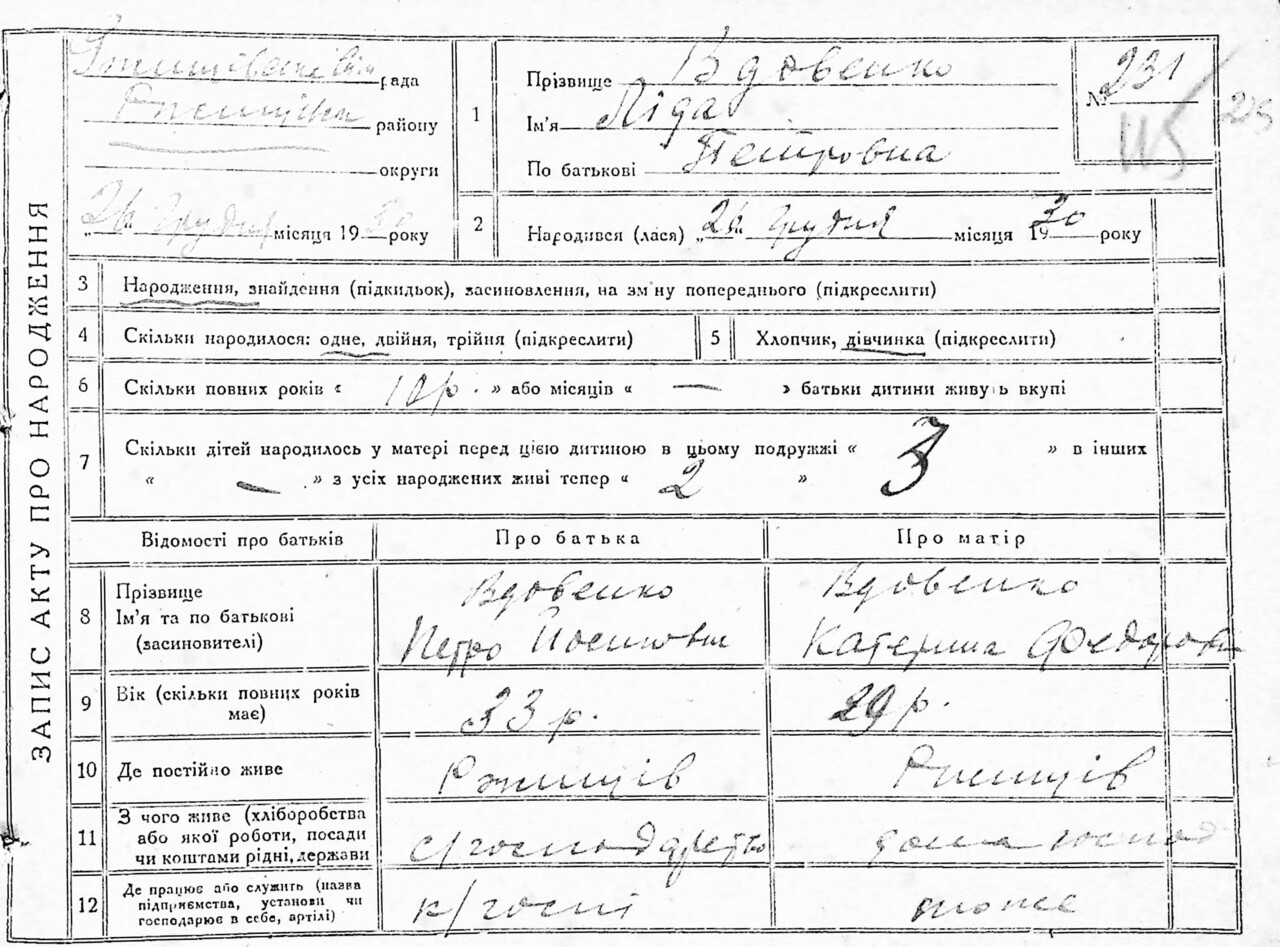 ЗАПИС АКТУ ПРО НАРОДЖЕННЯ
рада
району
округи
26 Грудня місяця 1930 року
1
Прізвище Вдовенко
Ім'я Ліда
По батькові Петровна
№ 231
115
2
Народився (лася) „26" Грудня місяця 1930 року
3 Народження, знайдення (підкидьок), засиновлення, на зм'ну попереднього (підкреслити)
4 Скільки народилося: одне, двійня, трійня (підкреслити) 5 Хлопчик, дівчинка (підкреслити)
6 Скільки повних років « 10 р. » або місяців « — » батьки дитини живуть вкупі
7 Скільки дітей народилось у матері перед цією дитиною в цьому подружжі « 3 » в інших
« — » з усіх народжених живі тепер « 2 »
Відомості про батьків Про батька Про матір
8 Прізвище Вдовенко Вдовенко
Ім'я та по батькові
(засиновителі) Петро Катерина
9 Вік (скільки повних років
має) 33 р. 29 р.
10 Де постійно живе Ржищів Ржищів
11 З чого живе (хліборобства
або якої роботи, посади
чи коштами рідні, держави
12 Де працює або служить (назва
підприємства, установи чи
господарює в себе, артілі)